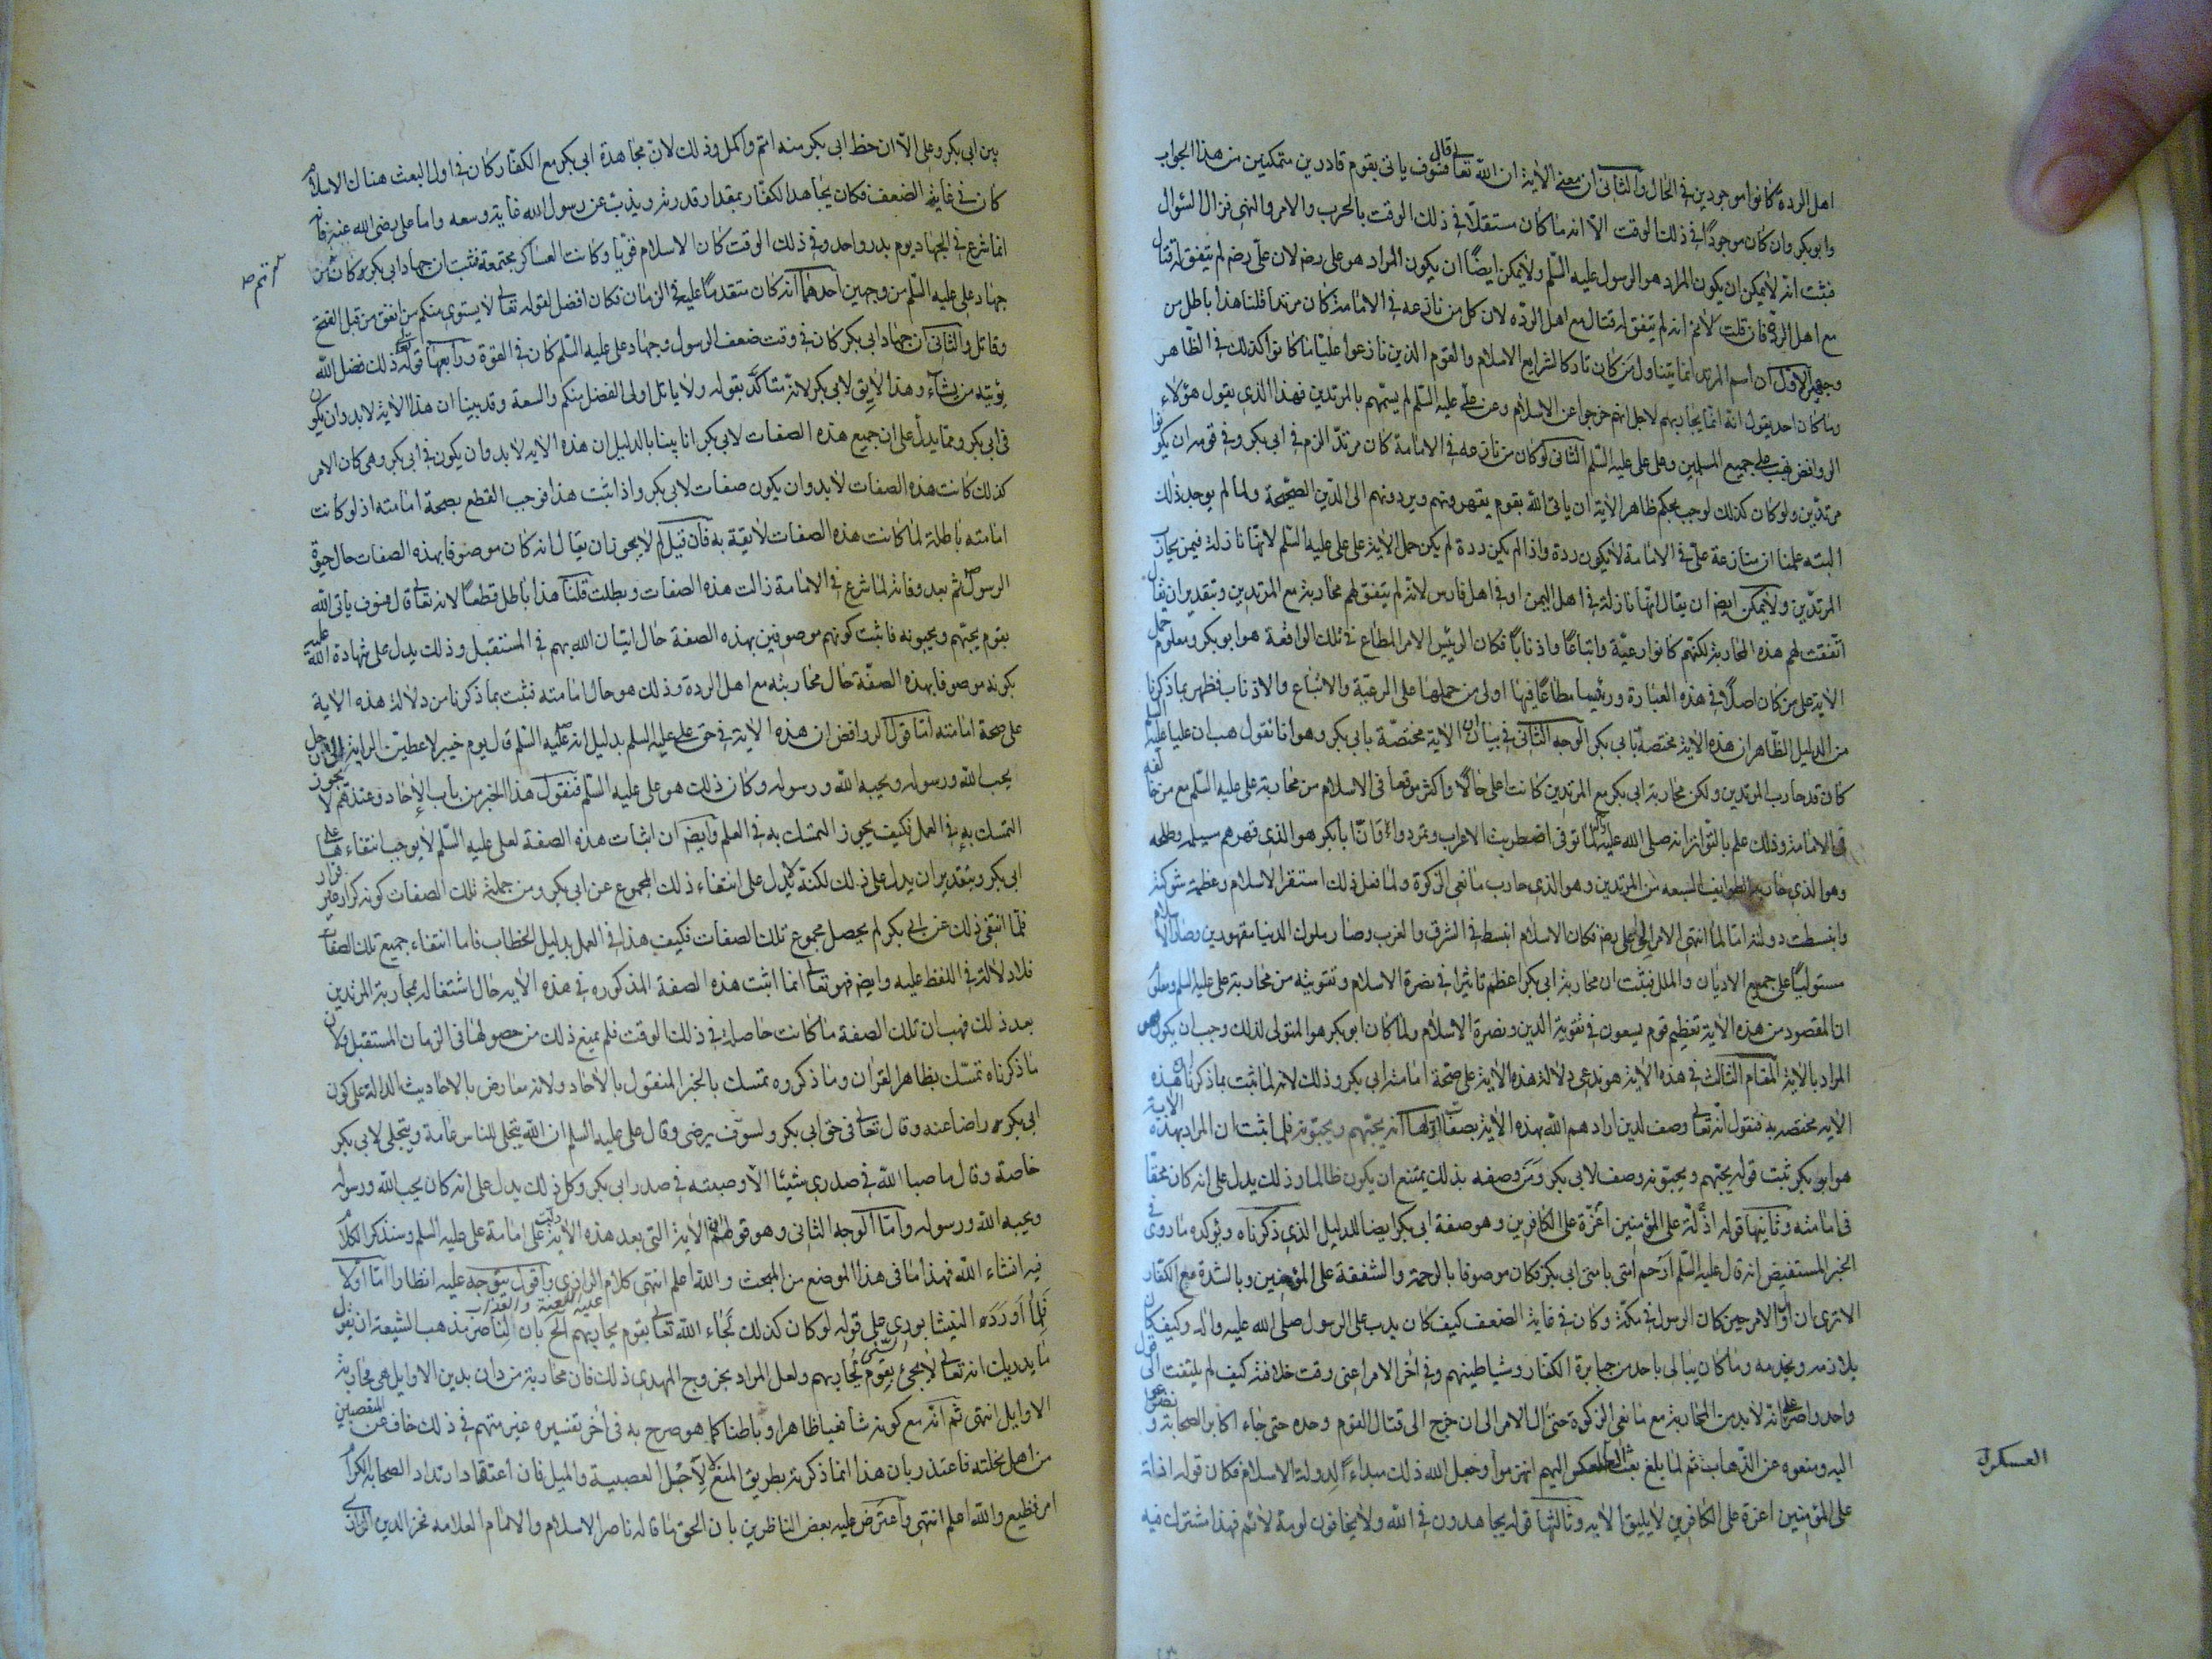 اهل الردة كانوا موجودين في الحال والثاني ان معنى الاية ان الله تعالى قال فسوف ياتي بقوم قادرين متمكنين من هذا الجواب
وابوبكر وان كان موجودًا في ذلك الوقت الّا انه ما كان مستقلّا في ذلك الوقت بالحرب والامر والنهى فزال السئوال
فثبت انه لا يمكن ان يكون المراد هو الرسول عليه السّلم ولا يمكن ايضًا ان يكون المراد هو على رضه لان على رضه لم يتفق له قتال
مع اهل الردّة فان قلت لانم انه لم يتفق له قتال مع اهل الردّه لان كل من نازعه في الامامة كان مرتدا قلنا هذا باطل من
وجهين الاوّل ان اسم المرتد انما يتناول من كان تاركا لشرايع الاسلام والقوم الذين نازعوا عليّا ما كانوا كذلك في الظاهر
وما كان احد يقول انه انما يحاربهم لاجل انهم خرجوا عن الاسلام وعن على عليه السّلم لم يسمّهم بالمرتدين فهذا الذي يقول هؤلاء
الروافض بهت على جميع المسلمين وعلى على عليه السّلم الثانى لو كان من نازعه في الامامة كان مرتدّا لزم في ابى بكر وفي قومه ان يكونوا
مرتدّين ولو كان كذلك لوجب بحكم ظاهر الاية ان ياتى الله بقوم يقهرونهم ويردونهم الى الدّين الصّحيحة ولما لم يوجد ذلك
البتة علمنا ان منازعة علىّ في الامامة لا يكون ردة واذا لم يكن ردة لم يكن حمل الاية على على عليه السّلم لانها نازلة فيمن يحارب
المرتدّين ولا يمكن ايضا ان يقال انها نازلة في اهل اليمن او في اهل فارس لانه لم يتفق لهم محاربة مع المرتدين وبتقدير ان يقال
اتّفقت لهم هذه المحاربة لكنهم كانوا رعيّة واتباعًا واذنابًا فكان الرئيس الامر المطاع في تلك الواقعة هو ابوبكر ومعلوم ان حمل
الاية على من كان اصلًا في هذه العبادة ورئيسا مطاعًا فيها اولى من حملها على الرعيّة والاتباع والاذناب فظهر بما ذكرنا
من الدليل الظاهر ان هذه الاية مختصة بابي بكر الوجه الثّانى في بيان ان الاية مختصّة بابي بكر وهو انا نقول هب ان عليا عليه السلم
كان قد حارب المرتدين ولكن محاربة ابى بكر مع المرتدين كانت اعلى حالًا واكثر موقعا في الاسلام من محاربة على عليه السّلم مع من خالفه
في الامامة وذلك علم بالتواتر انه صلى الله عليه وآله لما توفى اضطربت الاعراب وتمردوا وان ابا بكر هو الذي قهرهم مسيلمه وطلحه
وهو الذي حارب الطوايف السبعه من المرتدين وهو الذي حارب مانعى الزكوة ولما فعل ذلك استقر الاسلام وعظمت شوكته
وانبسطت دولته امّا لما انتهى الامر الى على رضه فكان الاسلام انبسط في الشرق والغرب وصار ملوك الدنيا مقهورين وصار الاسلام
مستوليًا على جميع الاديان والملل فثبت ان محاربة ابى بكر اعظم تاثيرا في نصرة الاسلام وتقويته من محاربة على عليه السلم ومعلوم
ان المقصود من هذه الاية تعظيم قوم يسعون في تقوية الدين ونصرة الاسلام ولما كان ابوبكر هو المتولى لذلك وجب ان يكون هو
المراد بالاية المقام الثالث في هذه الاية هو ندعى دلالة هذه الاية على صحّة امامة ابى بكر وذلك لانه لما ثبت بما ذكرنا ان هذه
الاية مختصه به فنقول انه تعالى وصف الذين ارادهم الله بهذه الاية بصفات اولها انه يحبّهم ويحبّونه فلما ثبت ان المراد بهذه الاية
هو ابوبكر ثبت قوله يحبّهم ويحبّونه وصف لابى بكر ومن وصفه بذلك يمتنع ان يكون ظالما وذلك يدل على انه كان محقّا
في امامته وثانيها قوله اذلّة على المؤمنين اعزّة على الكافرين وهو صفة ابى بكر ايضا للدليل الذي ذكرناه ويؤكده ما روى في
الخبر المستفيض انه قال عليه السّلم ارحم امتى بامتى ابى بكر فكان موصوفا بالرحمة والشفقة على المؤمنين وبالشدة مع الكفّار
الا ترى ان اول الامر حين كان الرسول في مكّة وكان في غاية الضعف كيف كان يدب على الرسول صلى الله عليه واله وكيف كان
يلازمه ويخدمه وما كان يبالى باحد من جبابرة الكفّار وشياطينهم وفي اخر الامر اعنى وقت خلافته كيف لم يلتفت الى قول
واحد واصرّ على انه لا بد من المحاربة مع مانعى الزكوة حتى آل الامر الى ان خرج الى قتال القوم وحده حتى جاء اكابر الصحابة وتضرعوا
اليه ومنعوه عن الذّهاب ثم لما بلغ بعث العسكر اليهم انهزموا وجعل الله ذلك مبداءً لدولة الاسلام فكان قوله اذلة
العسكر
على المؤمنين اعزة على الكافرين لا يليق الا به وثالثها قوله يجاهدون في الله ولا يخافون لومة لائم فهذا مشترك فيه
بين ابى بكر وعلى الّا ان حظ ابى بكر منه اتم واكمل وذلك لان مجاهدة ابى بكر مع الكفّار كان في اول البعث هناك الاسلام
كان في غاية الضعف فكان يجاهد الكفار بمقدار قدرته ويذب عن رسول الله غاية وسعه واما على رضى الله عنه فانه
انما شرع في الجهاد يوم بدر واحد وفي ذلك الوقت كان الاسلام قويّا وكانت العساكر مجتمعة فثبت ان جهاد ابى بكر كان اتم من
جهاد على عليه السّلم من وجهين احدهما انه كان متقدمًا عليه في الزمان فكان افضل لقوله تعالى لا يستوى منكم من انفق من قبل الفتح
وقاتل والثانى ان جهاد ابى بكر كان في وقت ضعف الرسول وجهاد على عليه السّلم كان في القوة ورابعها قوله تعالى ذلك فضل الله
يؤتيه من يشآء وهذا لايق لابى بكر لانه متاكّد بقوله ولا ياتل اولى الفضل منكم والسعة وقد بينا ان هذا الاية لا بد وان يكون
في ابى بكر ومما يدلّ على ان جميع هذه الصفات لابى بكر انا بينا بالدليل ان هذه الاية لا بد وان يكون في ابى بكر وهى كان الامر
كذلك كانت هذه الصفات لا بد وان يكون صفات لابى بكر واذا ثبت هذا فوجب القطع بصحة امامته اذ لو كانت
امامته باطلة لما كانت هذه الصفات لايقة به فان قيل لم لا يجوز ان يقال انه كان موصوفا بهذه الصفات حال حيوة
الرسول ثم بعد وفاته لما شرع في الامامة زالت هذه الصفات وبطلت قلنا هذا باطل قطعًا لانه تعالى قال فسوف ياتى الله
بقوم يحبّهم ويحبونه فاثبت كونهم موصوفين بهذه الصفة حال اتيان الله بهم في المستقبل وذلك يدل على شهادة الله عليه
بكونه موصوفا بهذه الصفّة حال محاربته مع اهل الردة وذلك هو حال امامته فثبت بما ذكرنا من دلالة هذه الاية
على صحة امامته امّا قول الروافض ان هذه الاية في حق على عليه السلم بدليل انه عليه السّلم قال يوم خيبر لاعطينّ الراية الى رجل
يحب الله ورسوله ويحبه الله ورسوله وكان ذلك هو على عليه السّلم فنقول هذا الخبر من باب الاحاد وعندهم لا يجوز
التمسك به في العمل فكيف يجوز التمسك به في العلم وايضا ان اثبات هذه الصفة لعلى عليه السّلم لا يوجب انتفاءها عن
ابى بكر وبتقدير ان يدل على ذلك لكنّه لا يدل على انتفاء ذلك المجموع عن ابى بكر ومن جملة تلك الصفات كونه كرار غير فرار
فلمّا انتفى ذلك عن ابى بكر لم يحصل مجموع تلك الصفات فكيف هذا في العمل بدليل الخطاب فاما انتفاء جميع تلك الصفات
فلا دلالة في اللفظ عليه وايضا فهو تعالى انما اثبت هذه الصفة المذكوره في هذه الاية حال اشتغاله بمحاربة المرتدين
بعد ذلك فهب ان تلك الصفة ما كانت حاصلة في ذلك الوقت فلم يمنع ذلك من حصولها في الزمان المستقبل ولان
ما ذكرناه تمسّك بظاهر القران وما ذكروه تمسك بالخبر المنقول بالاحاد ولانه معارض بالاحاديث الدالة على كون
ابى بكر راضا عنه وقال تعالى في حق ابى بكر ولسوف يرضى وقال على عليه السلم ان الله يتجلى للناس عامة ويتجلى لابى بكر
خاصة وقال ما صبا الله في صدرى شيئا الّا وصببته في صدر ابى بكر وكل ذلك يدل على انه كان يحب الله ورسوله
ويحبه الله ورسوله وامّا الوجه الثانى وهو قولهم الاية التى بعد هذه الاية دلّت على امامة على عليه السلم وسنذكر الكلام
فيه انشاء الله فهذا ما في هذا الموضع من المبحث والله اعلم انتهى كلام الرازى واقول يتوجّه عليه انظار امّا اولا
فلما اورده النيشابورى على قوله لو كان كذلك لجاء الله تعالى بقوم يحاربهم الخ بان لناصر مذهب الشيعة ان يقول
عليه اللعنة والعذاب
ما يدريك انه تعالى لا يجئ بقوم تحاربهم ولعل المراد بخروج المهدى ذلك فان محاربة من دان بدين الاوايل هى محاربة
الاوايل انتهى ثم انّه مع كونه شافعيا ظاهرا وباطنا كما هو صرح به في اخر تفسيره غير متهم في ذلك خاف عن المتعصبين
من اهل نحلته فاعتذر بان هذا انما ذكرته بطريق المنع لا لاجل العصبية والميل فان اعتقاد ارتداد الصحابة الكرام
امر فظيع والله اعلم انتهى واعترض عليه بعض الناظرين بان الحق ما قاله ناصر الاسلام والامام العلامه فخر الدين الرازى